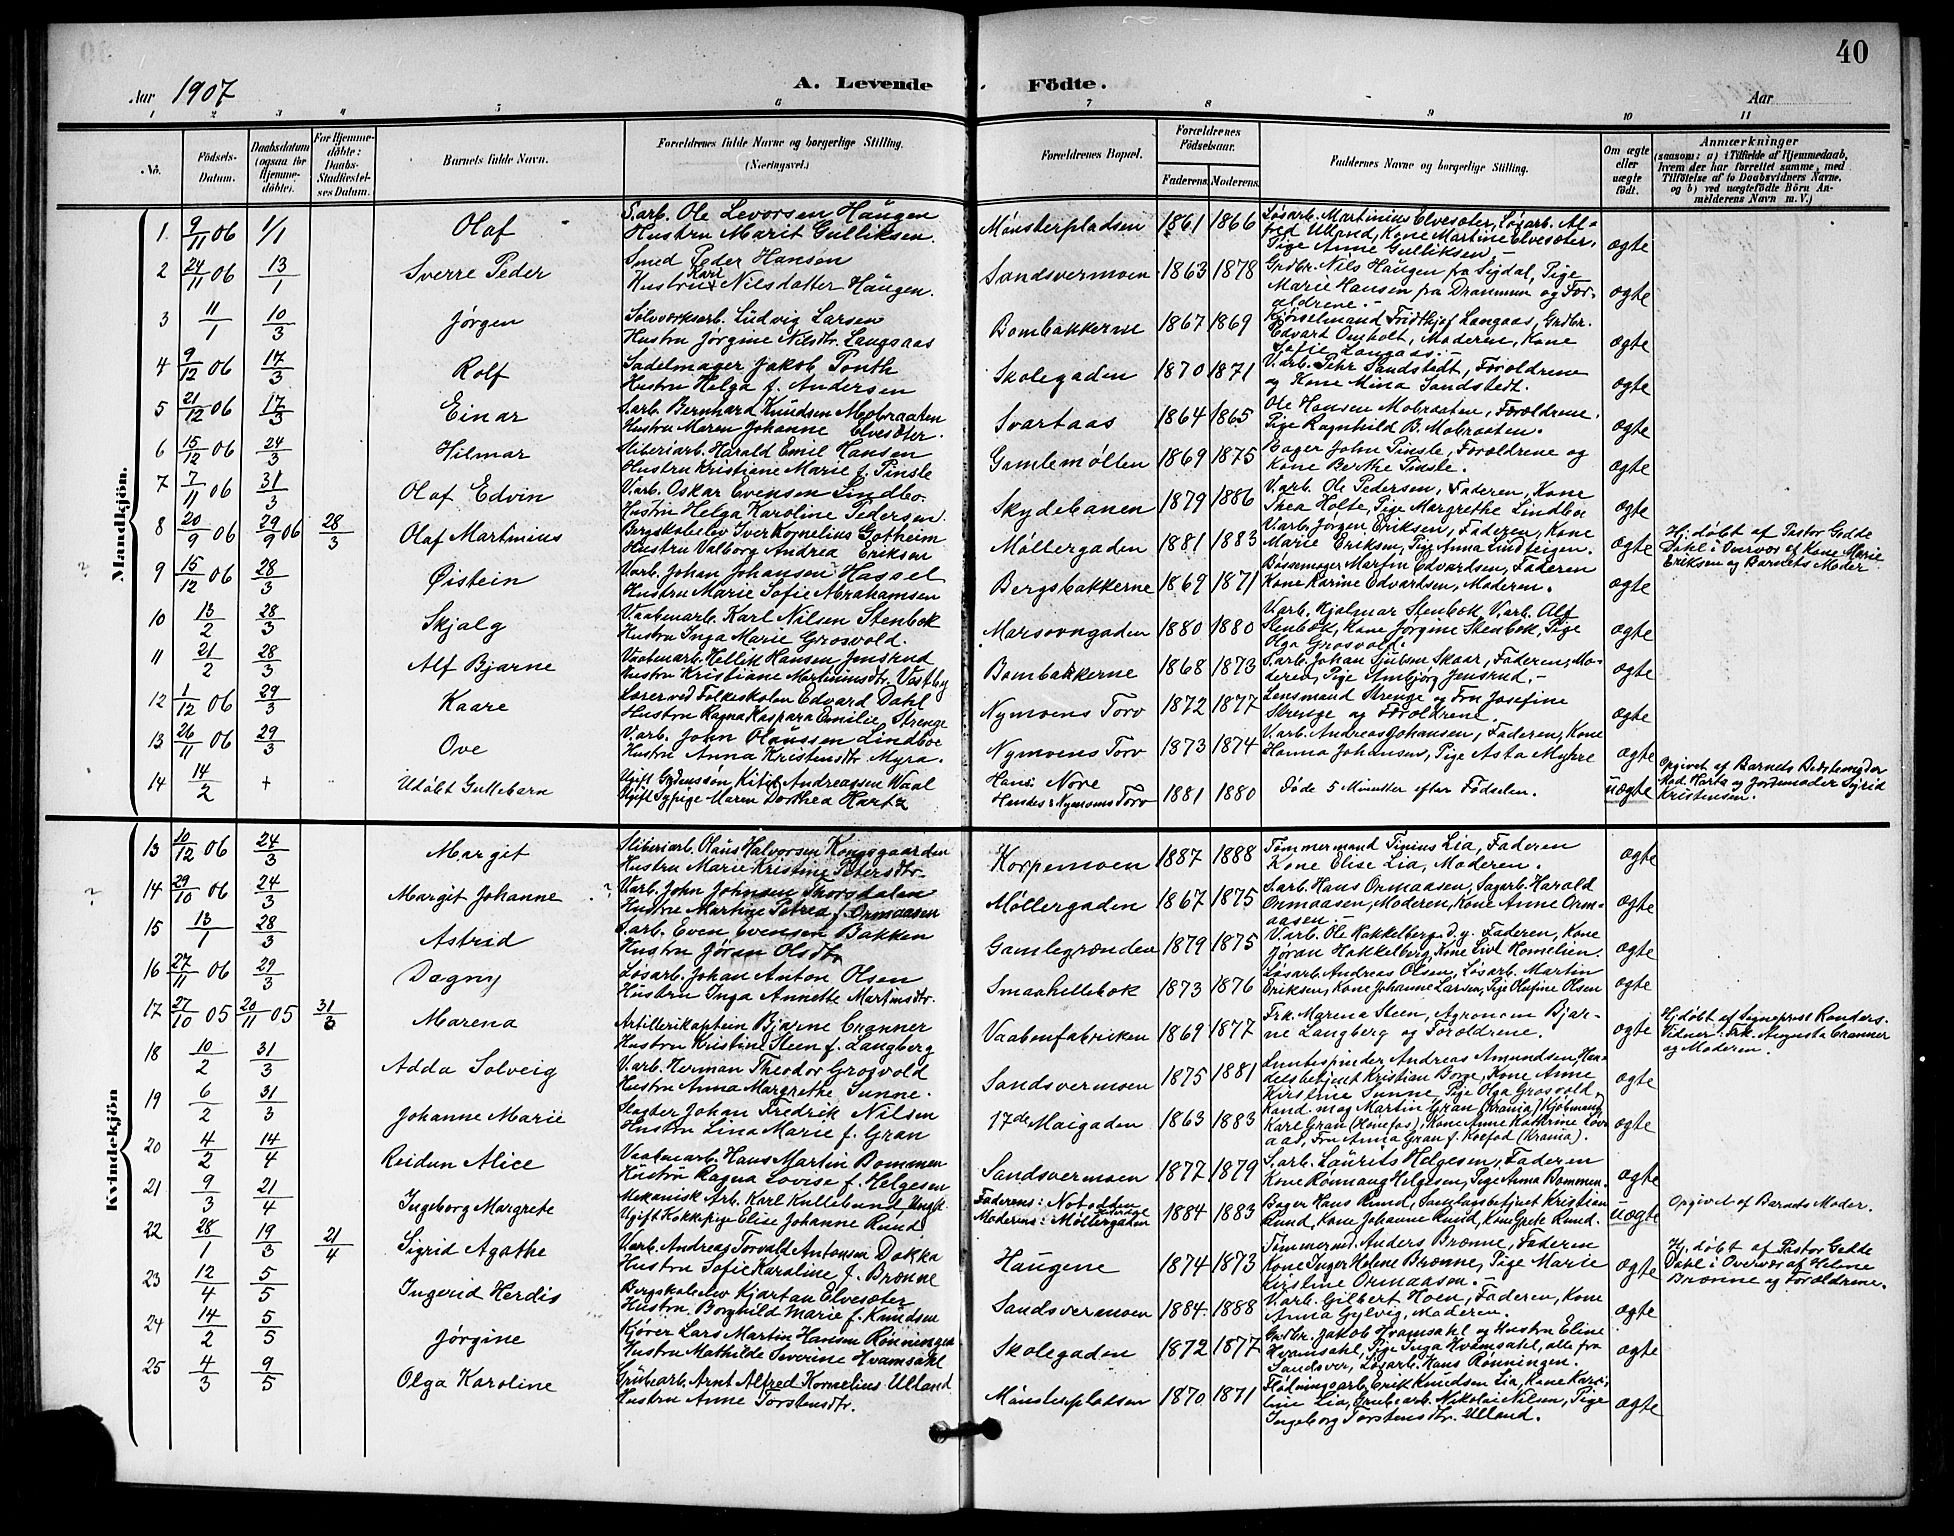 40
Aar 1907
A. Levende Födte.
Aar
1 2 3 4 5 6 7 8 9 10 11
No.
Födsels-Datum.
Daabsdatum (ogsaa for Hjemme-döbte).
For Hjemme-döbte: Daabs-Stadfæstel-ses Datum.
Barnets fulde Navn.
Forældrenes fulde Navne og borgerlige Stilling. (Næringsvei.)
Forældrenes Bopæl.
Forældrenes Födselsaar.
Faderens. Moderens.
Faddernes Navne og borgerlige Stilling.
Om ægte eller uægte födt.
Anmærkninger (saasom: a) i Tilfælde af Hjemmedaab, hvem der har forrettet samme, med Tilföielse af to Daabsvidners Navne, og b) ved uægtefödte Börn Anmelderens Navn m. V.)
Mandkjön.
1 9/11 06 1/1 Olaf S.arb. Ole Levorsen Haugen Hustru Marit Gulliksen. Mønsterpladsen 1861 1866 Løsarb. Martinius Elvesæter, Løsarb. Alfred Ulland, Kone Martine Elvesæter, Pige Anne Gulliksen.- ægte
2 24/11 06 13/1 Sverre Peder Smed Peder Hansen Hustru Kari Nilsdatter Haugen. Sandsværmoen 1863 1878 Grdbr. Nils Haugen fra Sigdal, Pige Marie Hansen fra Drammen og Forældrene.- ægte
3 11/1 10/3 Jørgen Sølvværksarb. Ludvig Larsen Hustru Jørgine Nilsdtr. Langaas Bombakkerne 1867 1869 Kjørselmand Fridthjof Langaas, Grdbr. Edvard Omholt, Moderen, Kone Sofie Langaas.- ægte
4 9/12 06 17/3 Rolf Sadelmager Jakob Tonth Hustru Helga f. Andersen Skolegaden 1870 1871 V.arb. Pehr Sandstedt, Forældrene og Kone Mina Sandstedt. ægte
5 21/12 06 17/3 Einar S.arb. Bernhard Knudsen Mobraaten Hustru Maren Johanne Elvesæter. Svartaas 1864 1865 Ole Hansen Mobraaten, Forældrene. Pige Ragnhild B. Mobraaten. ægte
6 15/12 06 24/3 Hilmar Sliberiarb. Harald Emil Hansen Hustru Kristiane Marie f. Tinsle Gamlemøllen 1869 1875 Bager John Tinsle, Forældrene og Kone Berthe Tinsle. ægte
7 7/11 06 31/3 Olaf Edvin V.arb. Oskar Evensen Lindbo. Hustru Helga Karoline Pedersen. Skydebanen 1879 1886 V.arb. Ole Pedersen, Faderen, Kone Thea Holte, Pige Margrethe Lindboe ægte
8 20/9 06 29/9 06 28/3 Olaf Martinius Bergskolelev Iver Kornelius Gotheim Hustru Valborg Andrea Eriksen Møllergaden 1881 1883 V.arb. Jørgen Eriksen, Faderen, Kone Marie Eriksen, Pige Anna Lindteigen. ægte Hj. døbt af Pastor Gedde Dahl i Overvær af Kone Marie Eriksen og Barnets Moder
9 15/12 06 28/3 Øistein V.arb. Johan Johansen Hassel Hustru Marie Sofie Abrahamsen Bergsbakkerne 1869 1871 Bøssemager Martin Edvardsen, Faderen Kone Karine Edvardsen, Moderen. ægte
10 13/2 28/3 Skjalg Vaabenarb. Karl Nilsen Stenbæk Hustru Inga Marie Grosvold. Marsovngaden 1880 1880 V.arb. Hjalmar Stenbæk V.arb. Alf Stenbæk, Kone Jørgine Stenbæk, Pige Olga Grosvold. ægte
11 21/2 28/3 Alf Bjarne Vaabenarb. Hellik Hansen Jensrud Hustru Kristiane Martiniusdtr. Vastby Bombakkerne 1868 1873 S.arb. Johan Sjulsen Skaar, Faderen, Moderen, Pige Ambjørg Jensrud.- ægte
12 1/12 06 29/3 Kaare Lærer ved Folkeskolen Edvard Dahl Hustru Ragna Kaspara Emilie, Strenge Nymoens Torv 1872 1877 Lensmand Strenge og Fru Josefine Strenge og Forældrene. ægte
13 26/11 06 29/3 Ove V.arb. John Olaussen Lindboe Hustru Anna Kristensdtr. Myra. Nymoens Torv 1873 1874 V.arb. Andreas Johansen, Faderen, Kone Hanna Johansen, Pige Asta Myhre ægte
14 14/2 + Udøbt Guttebarn Ugift Grdenssøn Kittil Andreassen Waal Ugift Sypige Maren Dorthea Hartz Hans: Nore Hendes: Nymoens Torv 1881 1880 Døde 5 Minutter efter Fødselen. uægte Opgivet af Barnets Bedstemoder Mad. Hartz og Jordemoder Sigrid Kristensen.
Kvindekjön
13 10/12 06 24/3 Margit Sliberiarb. Olaus Halvorsen Kongsgaarden Hustru Marie Kristine Petersdtr. Korpemoen 1887 1888 Tømmermand Tinius Lia, Faderen Kone Elise Lia, Moderen. ægte
? 14 29/10 06 24/3 Margit Johanne ? V.arb. John Johnsen Skorgdalen Hustru Martine Petrea f. Ormaasen Møllergaden 1867 1875 S.arb. Hans Ormaasen, Sagarb. Harald Ormaasen, Moderen, Kone Anne Ormaasen.- ægte
15 13/1 28/3 Astrid S.arb. Even Evensen Bakken Hustru Jøran Olsdtr. Gamlegrænden 1879 1875 V.arb. Ole Hakkelberg d.y. Faderen, Kone Jøran Hakkelberg, Kone Livl Homelien. ægte
16 27/11 06 29/3 Dagny Løsarb. Johan Anton Olsen Hustru Inga Annette Martinsdtr. Smaahellebæk 1873 1876 Løsarb. Andreas Olsen, Løsarb. Martin Eriksen, Kone Johanne Larsen, Pige Olufine Olsen ægte
17 27/10 05 20/11 05 31/3 Marena Artillerikaptein Bjarne Cranner Hustru Kristine Steen f. Langberg Vaabenfabriken 1869 1877 Frk. Marena Steen, Agronom Bjarne Langberg og Forældrene. ægte Hj. døbt af Sognepræst Randers. Vidner: Frk. Augusta Cranner og Moderen.
18 10/2 31/3 Adda Solveig V.arb. Herman Theodor Grosvold Hustru Anna Margrethe Sunne. Sandsværmoen 1875 1881 Luntespinder Andreas Amundsen, Handelsbetjent Kristian Borge, Kone Anne Kirstine Sunne, Pige Olga Grosvold. ægte
19 6/2 31/3 Johanne Marie Slagter Johan Fredrik Nilsen Hustru Lina Marie f. Gran 17de Maigaden 1863 1883 Kand. mag Martin Gran (Krania), Kjøbmand Karl Gran (Hønefos), Kone Anne Kathrine Lovaas, Fru Anna Gran f. Koefod (Krania). ægte
20 4/2 14/4 Reidun Alice Vaabenarb. Hans Martin Bommen Hustru Ragna Lovise f. Helgesen Sandsværmoen 1872 1879 S.arb. Laurits Helgesen, Faderen Kone Rønnaug Helgesen, Pige Anna Bommen. ægte
21 9/3 21/4 Ingeborg Margrete Mekanisk Arb. Karl Kullebund, Ungk. Ugift Kokkepige Elise Johanne Rund Faderens: Notodden Moderens: Møllergaden 1884 1883 Bager Hans Rund, Samlanbetjent Kristian Rund, Kone Johanne Rund, Kone Grete Rund. uægte Opgivet af Barnets Moder.
22 28/1 19/3 21/4 Sigrid Agathe V.arb. Andreas Torvald Antonsen Dokka Hustru Sofie Karoline f. Brønne Haugene 1874 1873 Tømmermd. Anders Brønne, Faderen Kone Inger Helene Brønne, Pige Marie Kirstine Ormaasen.- ægte Hj. døbt af Pastor Gedde Dahl i Overvær af Helene Brønne og Forældrene.
23 12/4 5/5 Ingerid Herdis Bergskolelev Kjartan Elvesæter Hustru Borghild Marie f. Knudsen Sandsværmoen 1884 1888 V.arb. Gilbert Hoen, Faderen, Kone Anna Gylvig, Moderen. ægte
24 14/2 5/5 Jørgine Kjører Lars Martin Hansen Rønningen Hustru Mathilde Severine Hvamsahl Skolegaden 1872 1877 Grdbr. Jakob Hvamsahl og Hustru Eline Hvamsahl, Pige Inga Hvamsahl, alle fra Sandsvær, Løsarb. Hans Rønningen. ægte
25 4/3 9/5 Olga Karoline Grubearb. Arnt Alfred Kornelius Ulland Hustru Anne Torstensdtr. Mønsterpladsen 1870 1871 Flødningsarb. Erik Knudsen Lia, Kone Karoline Lia, Grubearb. Nikolai Nilsen, Pige Ingeborg Torstensdtr. Ulland. ægte